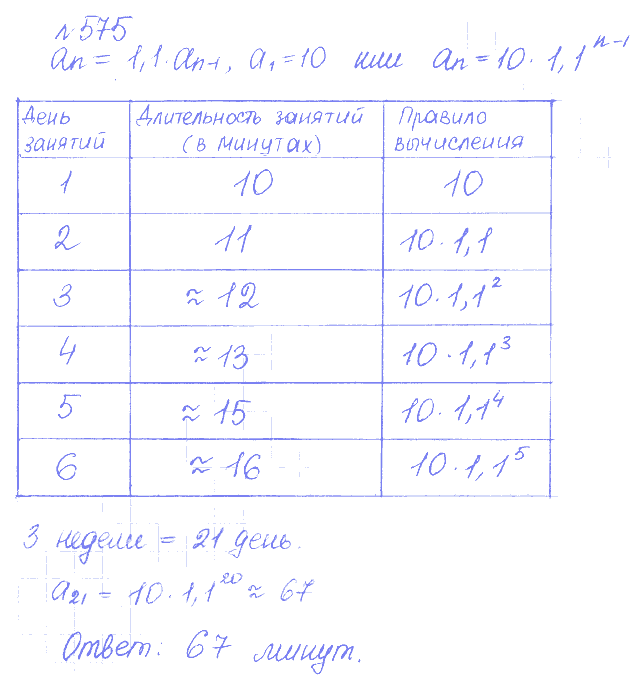 №575
aₙ = 1,1·aₙ₋₁, a₁ = 10 или aₙ = 10·1,1ⁿ⁻¹
День занятий | Длительность занятий (в минутах) | Правило вычисления
1 | 10 | 10
2 | 11 | 10·1,1
3 | ≈12 | 10·1,1²
4 | ≈13 | 10·1,1³
5 | ≈15 | 10·1,1⁴
6 | ≈16 | 10·1,1⁵
3 недели = 21 день.
a₂₁ = 10·1,1²⁰ ≈ 67
Ответ: 67 минут.